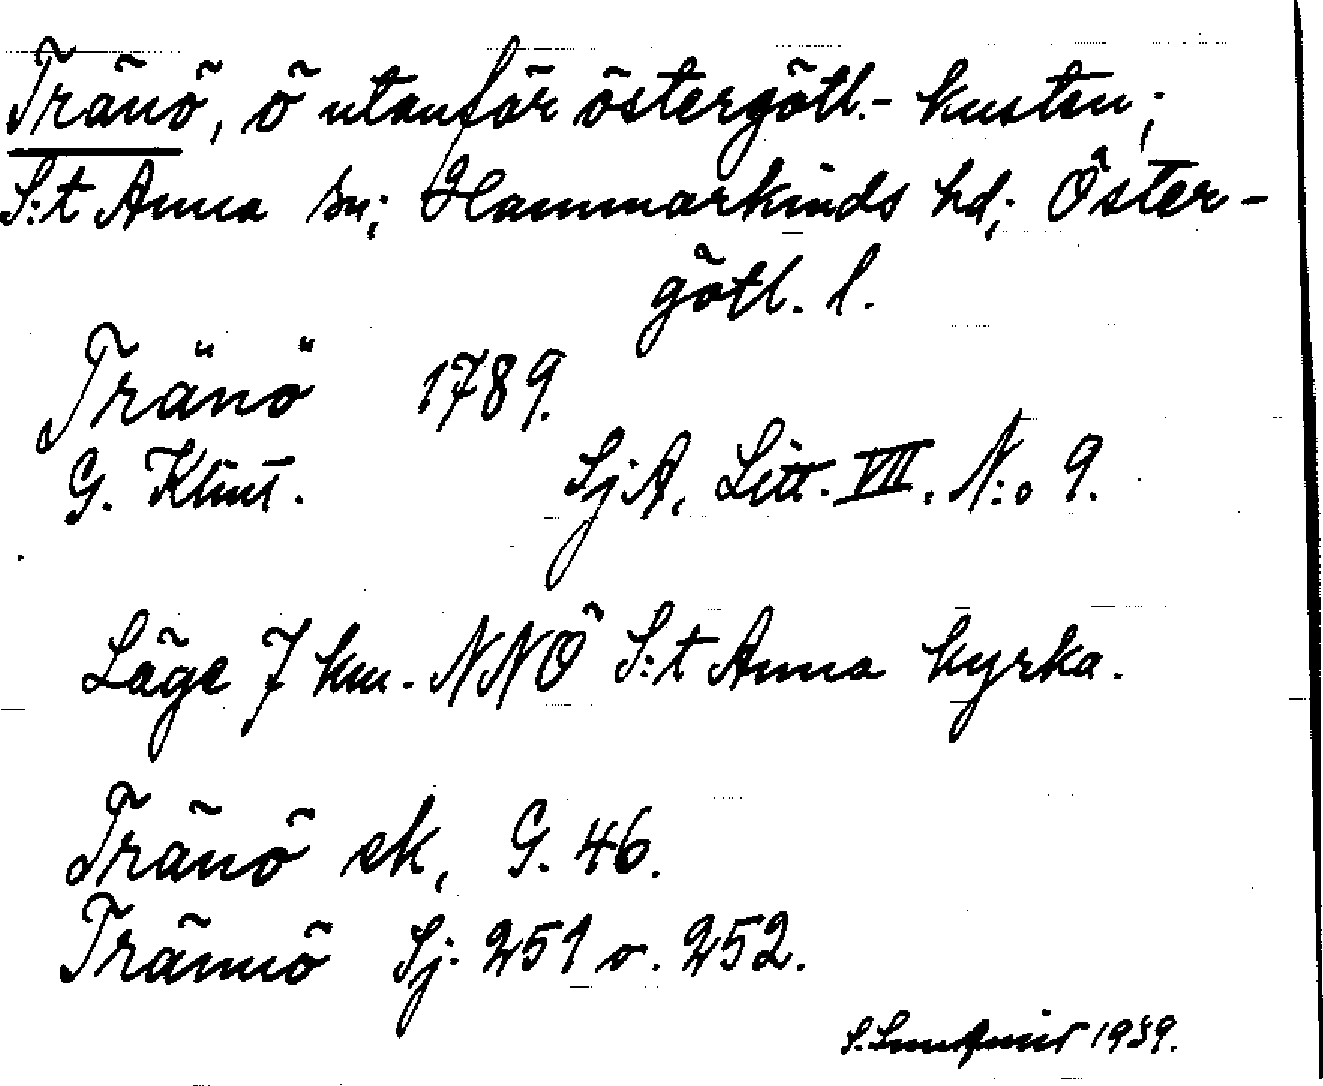 Tränö, ö utanför östergötl.- kusten;
S:t Anna sn; Hammarkinds hd; Öster-
götl. l.
Tränö 1789.
G. Klint. SjA, Litt. VII. N:o 9.
Läge 7 km. NNÖ S:t Anna kyrka.
Tränö ek, G. 46.
Trännö Sj. 251 o. 252.
S. 1939.